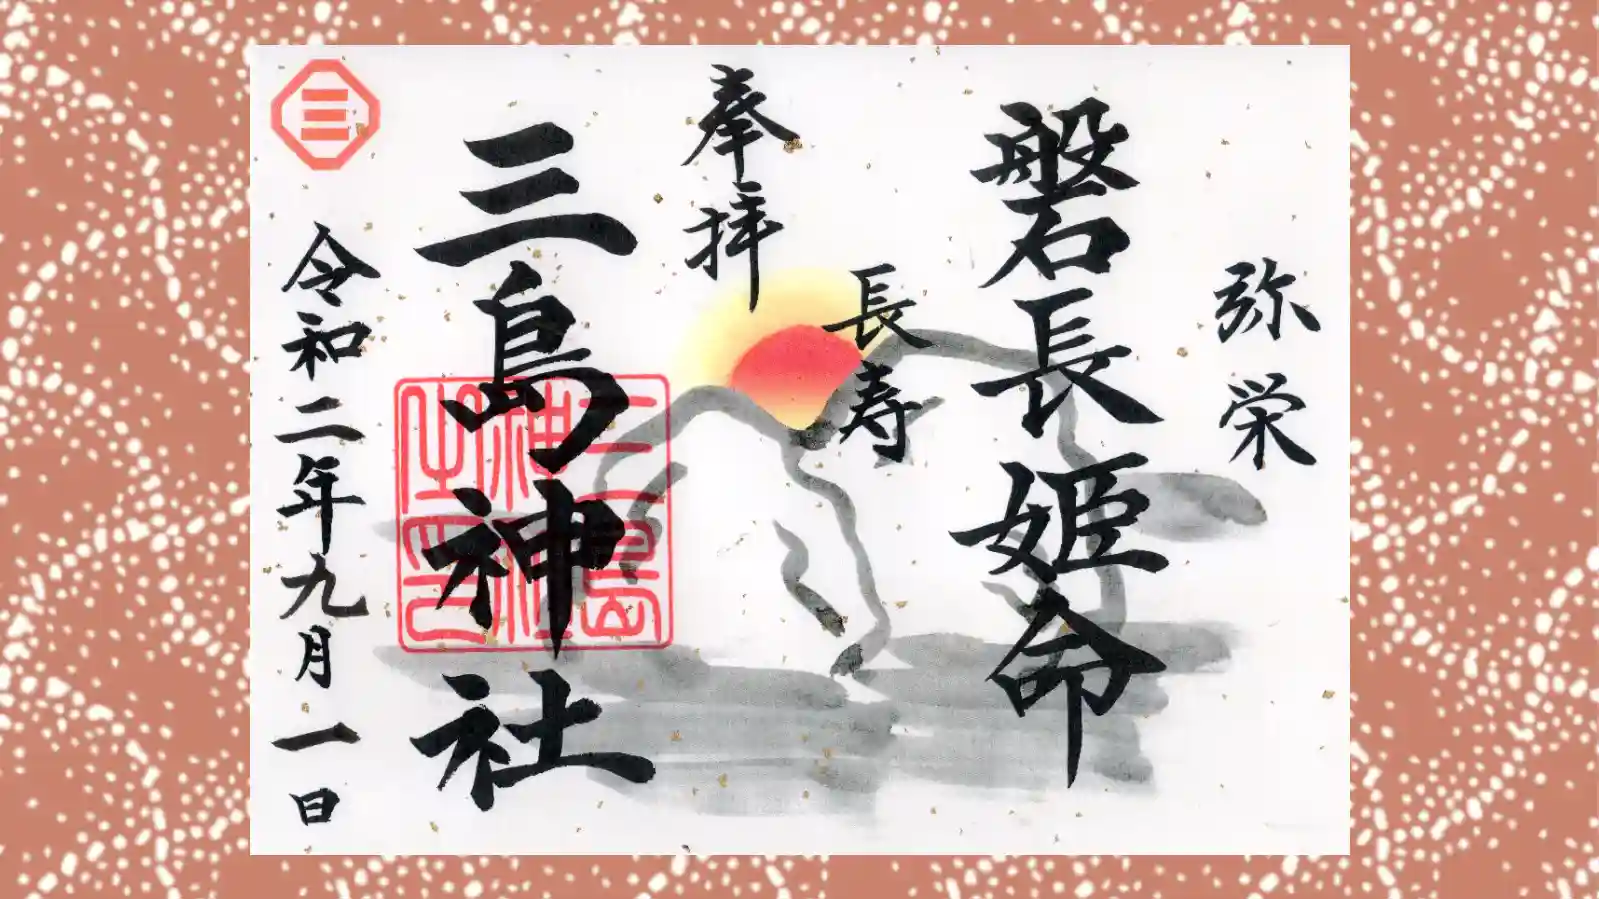 弥栄
磐長姫命
長寿
奉拝
三島神社
三島神社之印
三
令和二年九月一日